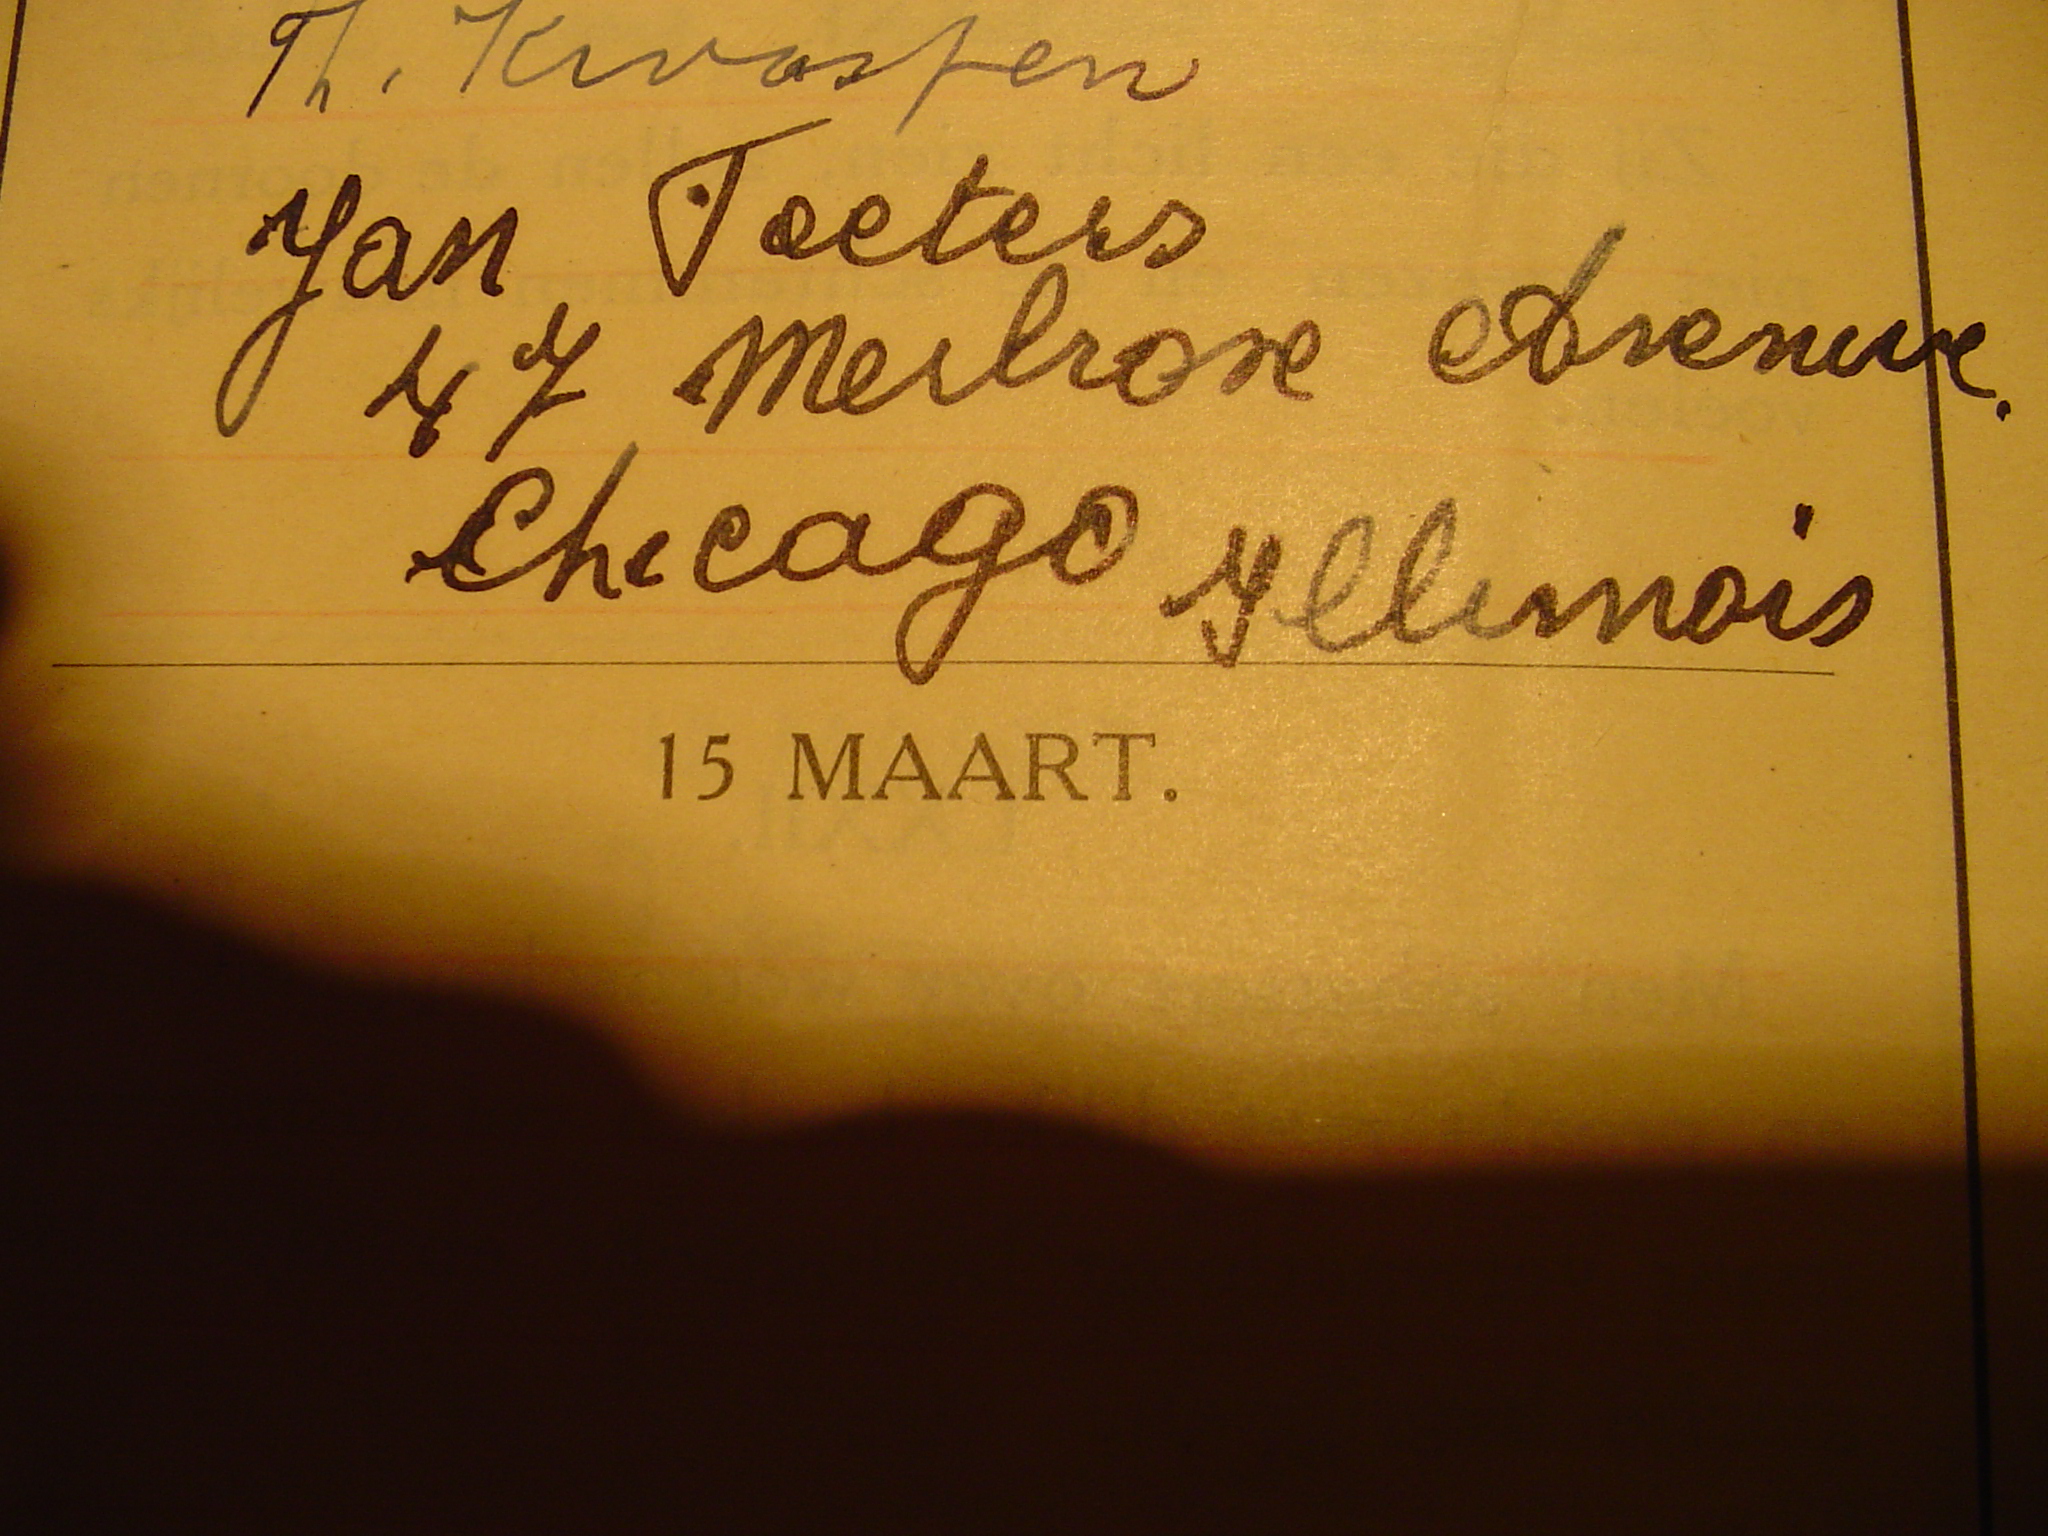 Th. Kwasten
Jan Toeters
47 Meilrose Avenue.
Chicago Illinois
15 MAART.